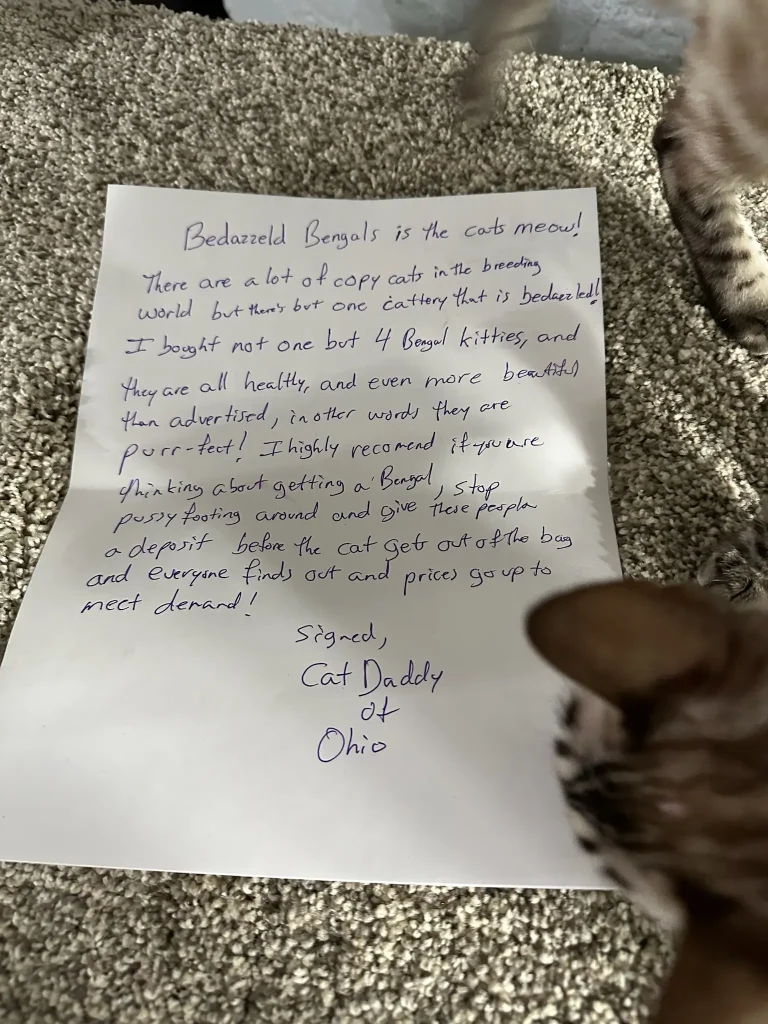 Bedazzeld Bengals is the cats meow!
There are a lot of copy cats in the breeding
world but there's but one cattery that is bedazzled!
I bought not one but 4 Bengal kitties, and
they are all healthy, and even more beautiful
than advertised, in other words they are
purr-fect! I highly recomend if you are
thinking about getting a Bengal, stop
pussy footing around and give these people
a deposit before the cat gets out of the bag
and everyone finds out and prices go up to
meet demand!
Signed,
Cat Daddy
of
Ohio